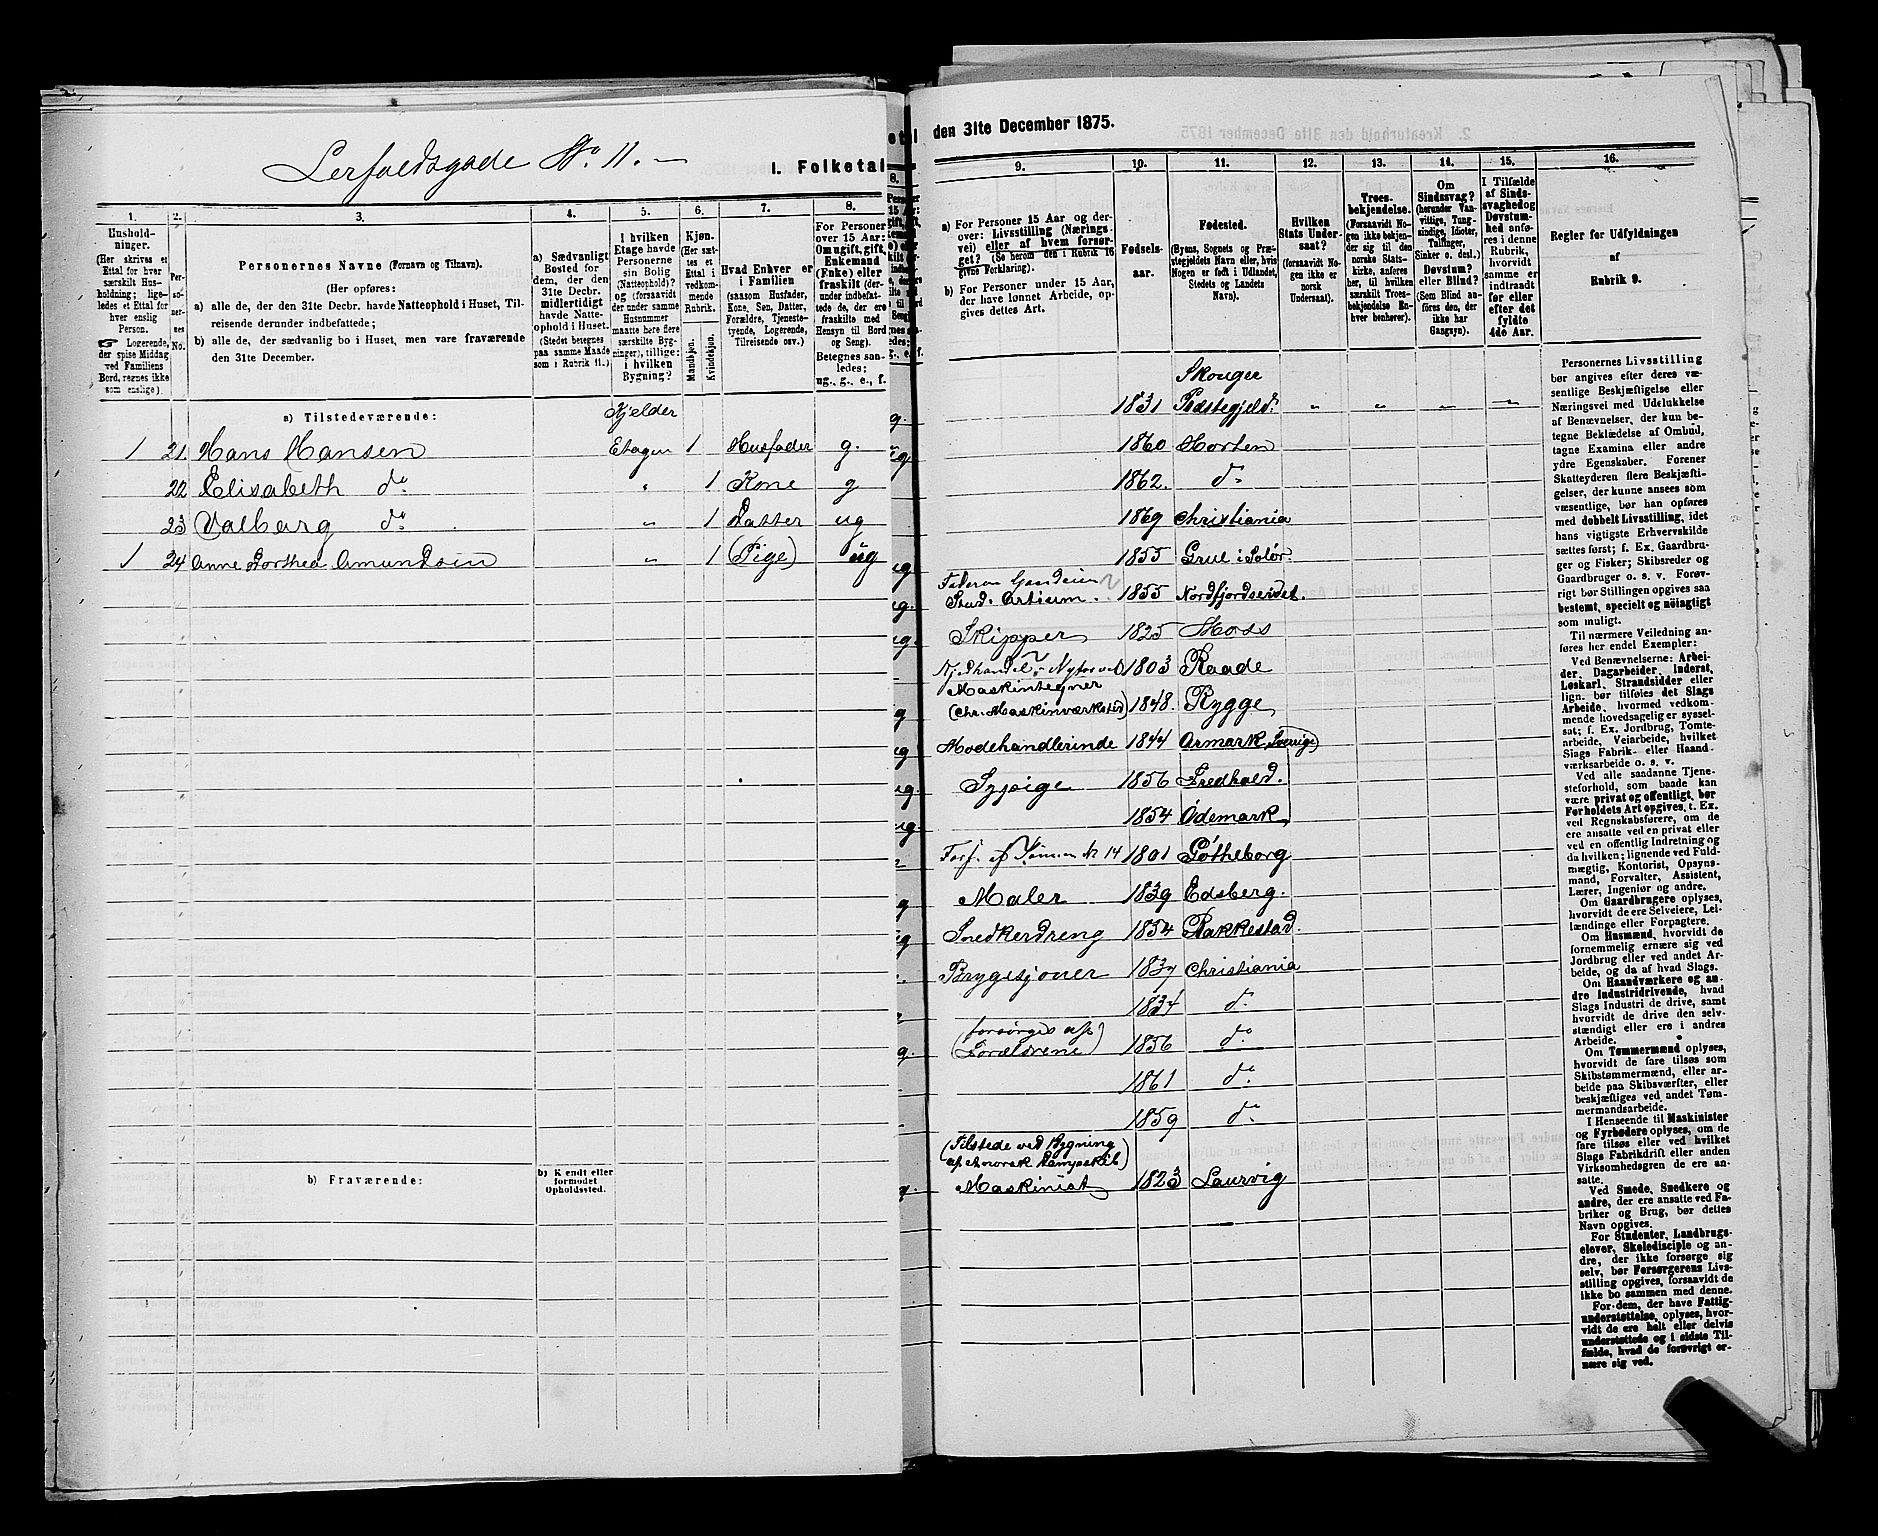 Lerfaldsgade No. 11.
I. Folketal
1.
2.
3.
4.
5.
6.
7.
8.
Hushold-
ninger.
(Her skrives et
Ettal for hver
særskilt Hus-
holdning; lige-
ledes et Ettal for
hver enslig
Person.
Logerende,
der spise Middag
ved Familiens
Bord, regnes ikke
som enslige).
Per-
so-
ner-
nes
No.
Personernes Navne (Fornavn og Tilnavn).
(Her opføres:
a) alle de, der den 31te Decbr. havde Natteophold i Huset, Til-
reisende derunder indbefattede;
b) alle de, der sædvanlig bo i Huset, men vare fraværende
den 31te December.
a) Sædvanligt
Bosted for
dem, der den
31te Decbr.
midlertidigt
havde Natte-
ophold i Huset.
(Stedet betegnes
paa samme Maade
som i Rubrik 11.)
I hvilken
Etage havde
Personerne
sin Bolig
(Natteophold)?
og (forsaavidt
der under samme
Husnummer
maatte høre flere
særskilte Byg-
ninger), tillige:
i hvilken
Bygning?
Kjøn.
(Her sæt-
tes et
Ettal i
vedkom-
mende
Rubrik.
Mandkjøn.
Kvindekjøn.
Hvad Enhver er
i Familien
(saasom Husfader,
Kone, Søn, Datter,
Forældre, Tjeneste-
tyende, Logerende,
Tilreisende osv.)
For Personer
over 15 Aar:
Om ugift, gift,
Enkemand
(Enke) eller
fraskilt (der-
under indbefat-
tede de, der ere
fraskilte med
Hensyn til Bord
og Seng).
Betegnes saa-
ledes:
ug., g., e., f.
a) Tilstedeværende:
Kjelder
1 21 Hans Hansen Etagen 1 Husfader g.
22 Elisabeth do „ 1 Kone g
23 Valborg do „ 1 Datter ug
1 24 Anne Dorthea Amundsen „ 1 (Pige) ug
b) Fraværende:
b) Kjendt eller
formodet
Opholdssted.
den 31te December 1875.
9.
10.
11.
12.
13.
14.
15.
16.
a) For Personer 15 Aar og der-
over: Livsstilling (Nærings-
vei) eller af hvem forsør-
get? (Se herom den i Rubrik 16
givne Forklaring).
b) For Personer under 15 Aar,
der have lønnet Arbeide, op-
gives dettes Art.
Fødsels-
aar.
Fødested.
(Byens, Sognets og Præ-
stegjeldets Navn eller, hvis
Nogen er født i Udlandet,
Stedets og Landets
Navn).
Hvilken
Stats Under-
saat?
(forsaavidt No-
gen ikke er
norsk
Undersaat).
Troes-
bekjendelse.
(Forsaavidt No-
gen ikke bekjen-
der sig til den
norske Stats-
kirke, anføres
her, til hvilken
særskilt Troes-
bekjendelse En-
hver henhører).
Om
Sindssvag?
(herunder Van-
vittige, Tung-
sindige, Idioter,
Tullinger,
Sinker o. desl.)
Døvstum?
eller Blind?
(Som Blind an-
føres den, der
ikke har
Gangsyn).
I Tilfælde
af Sinds-
svaghed og
Døvstum-
hed anfø-
res i denne
Rubrik,
hvorvidt
samme er
indtraadt
før eller
efter det
fyldte
4de Aar.
Regler for Udfyldningen
af
Rubrik 9.
Skouger
1831 Præstegjeld. „ „ „ „
1860 Horten
1862. do
1869 Christiania
1855 Grue i Solør.
Stud. Artium. 1855 Nordfjordeidet.
Skipper 1825 Moss
1803 Raade
Maskintegner
(Chr. Maskinværksted) 1848. Rygge
Modehandlerinde 1844 Armark, Sverige)
Sypige 1856 Fredhald.
1854 Ødemark
Fors. af Sønnen Nr 14 1801 Gøtheborg
Maler 1839 Edsberg.
Snedkerdreng 1854 Rakkestad.
Bryggesjouer 1837 Christiania
1834 do
(forsørges af
Forældrene) 1856 do
1861 do
1859 do
(Tilstede ved Bygning
af norsk Dampskib)
Maskinist 1823 Laurvig
Personernes Livsstilling
bør angives efter deres væ-
sentlige Beskjæftigelse eller
Næringsvei med Udelukkelse
af Benævnelser, der kun be-
tegne Beklædelse af Ombud,
tagne Examina eller andre
ydre Egenskaber. Forener
Skatteyderen flere Beskjæfti-
gelser, der kunne ansees som
væsentlige, bør han opføres
med dobbelt Livsstilling, idet
hans vigtigste Erhvervskilde
sættes først; f. Ex. Gaardbru-
ger og Fisker; Skibsreder og
Gaardbruger o. s. v. Forøv-
rigt bør Stillingen opgives saa
bestemt, specielt og nöiagtigt
som muligt.
Til nærmere Veiledning an-
føres her endel Exempler:
Ved Benævnelserne: Arbei-
der, Dagarbeider, Inderst,
Løskarl, Strandsidder eller
lign. bør tilføies det Slags
Arbeide, hvormed vedkom-
mende hovedsagelig er syssel-
sat; f. Ex. Jordbrug, Tomte-
arbeide, Veiarbeide, hvilket
Slags Fabrik- eller Haand-
værksarbeide o. s. v.
Ved alle saadanne Tjene-
steforhold, som baade kan
være privat og offentligt, bør
Forholdets Art opgives, t. Ex.
ved Regnskabsførere, om de
ere ansatte ved en privat eller
ved en offentlig Indretning og
da hvilken; lignende ved Fuld-
mægtig, Kontorist, Opsyns-
mand, Forvalter, Assistent,
Lærer, Ingeniør og andre.
Om Gaardbrugere oplyses,
hvorvidt de ere Selveiere, Lei-
lændinge eller Forpagtere.
Om Husmænd, hvorvidt de
fornemmelig ernære sig ved
Jordbrug eller ved andet Ar-
beide, og da af hvad Slags.
Om Haandværkere og an-
dre Industridrivende, hvad
Slags Industri de drive, samt
hvorvidt de drive den selv-
stændigt eller ere i andres
Arbeide.
Om Tømmermænd oplyses,
hvorvidt de fare tilsøs som
Skibstømmermænd, eller ar-
beide paa Skibsværfter, eller
beskjæftiges ved andet Tøm-
mermandsarbeide.
I Henseende til Maskinister
og Fyrbødere oplyses, om de
fare tilsøs eller ved hvilket
Slags Fabrikdrift eller anden
Virksomhedsgren de ere an-
satte.
Ved Smede, Snedkere og
andre, der ere ansatte ved Fa-
briker og Brug, bør dettes
Navn opgives.
For Studenter, Landbrugs-
elever, Skoledisciple og an-
dre, der ikke forsørge sig
selv, bør Forsørgerens Livs-
stilling opgives, forsaavidt de
ikke bo sammen med denne.
For dem, der have Fattig-
understøttelse, oplyses, hvor-
vidt de ere helt eller delvis
understøttede og i sidste Til-
fælde, hvad de forøvrigt er-
nære sig ved.